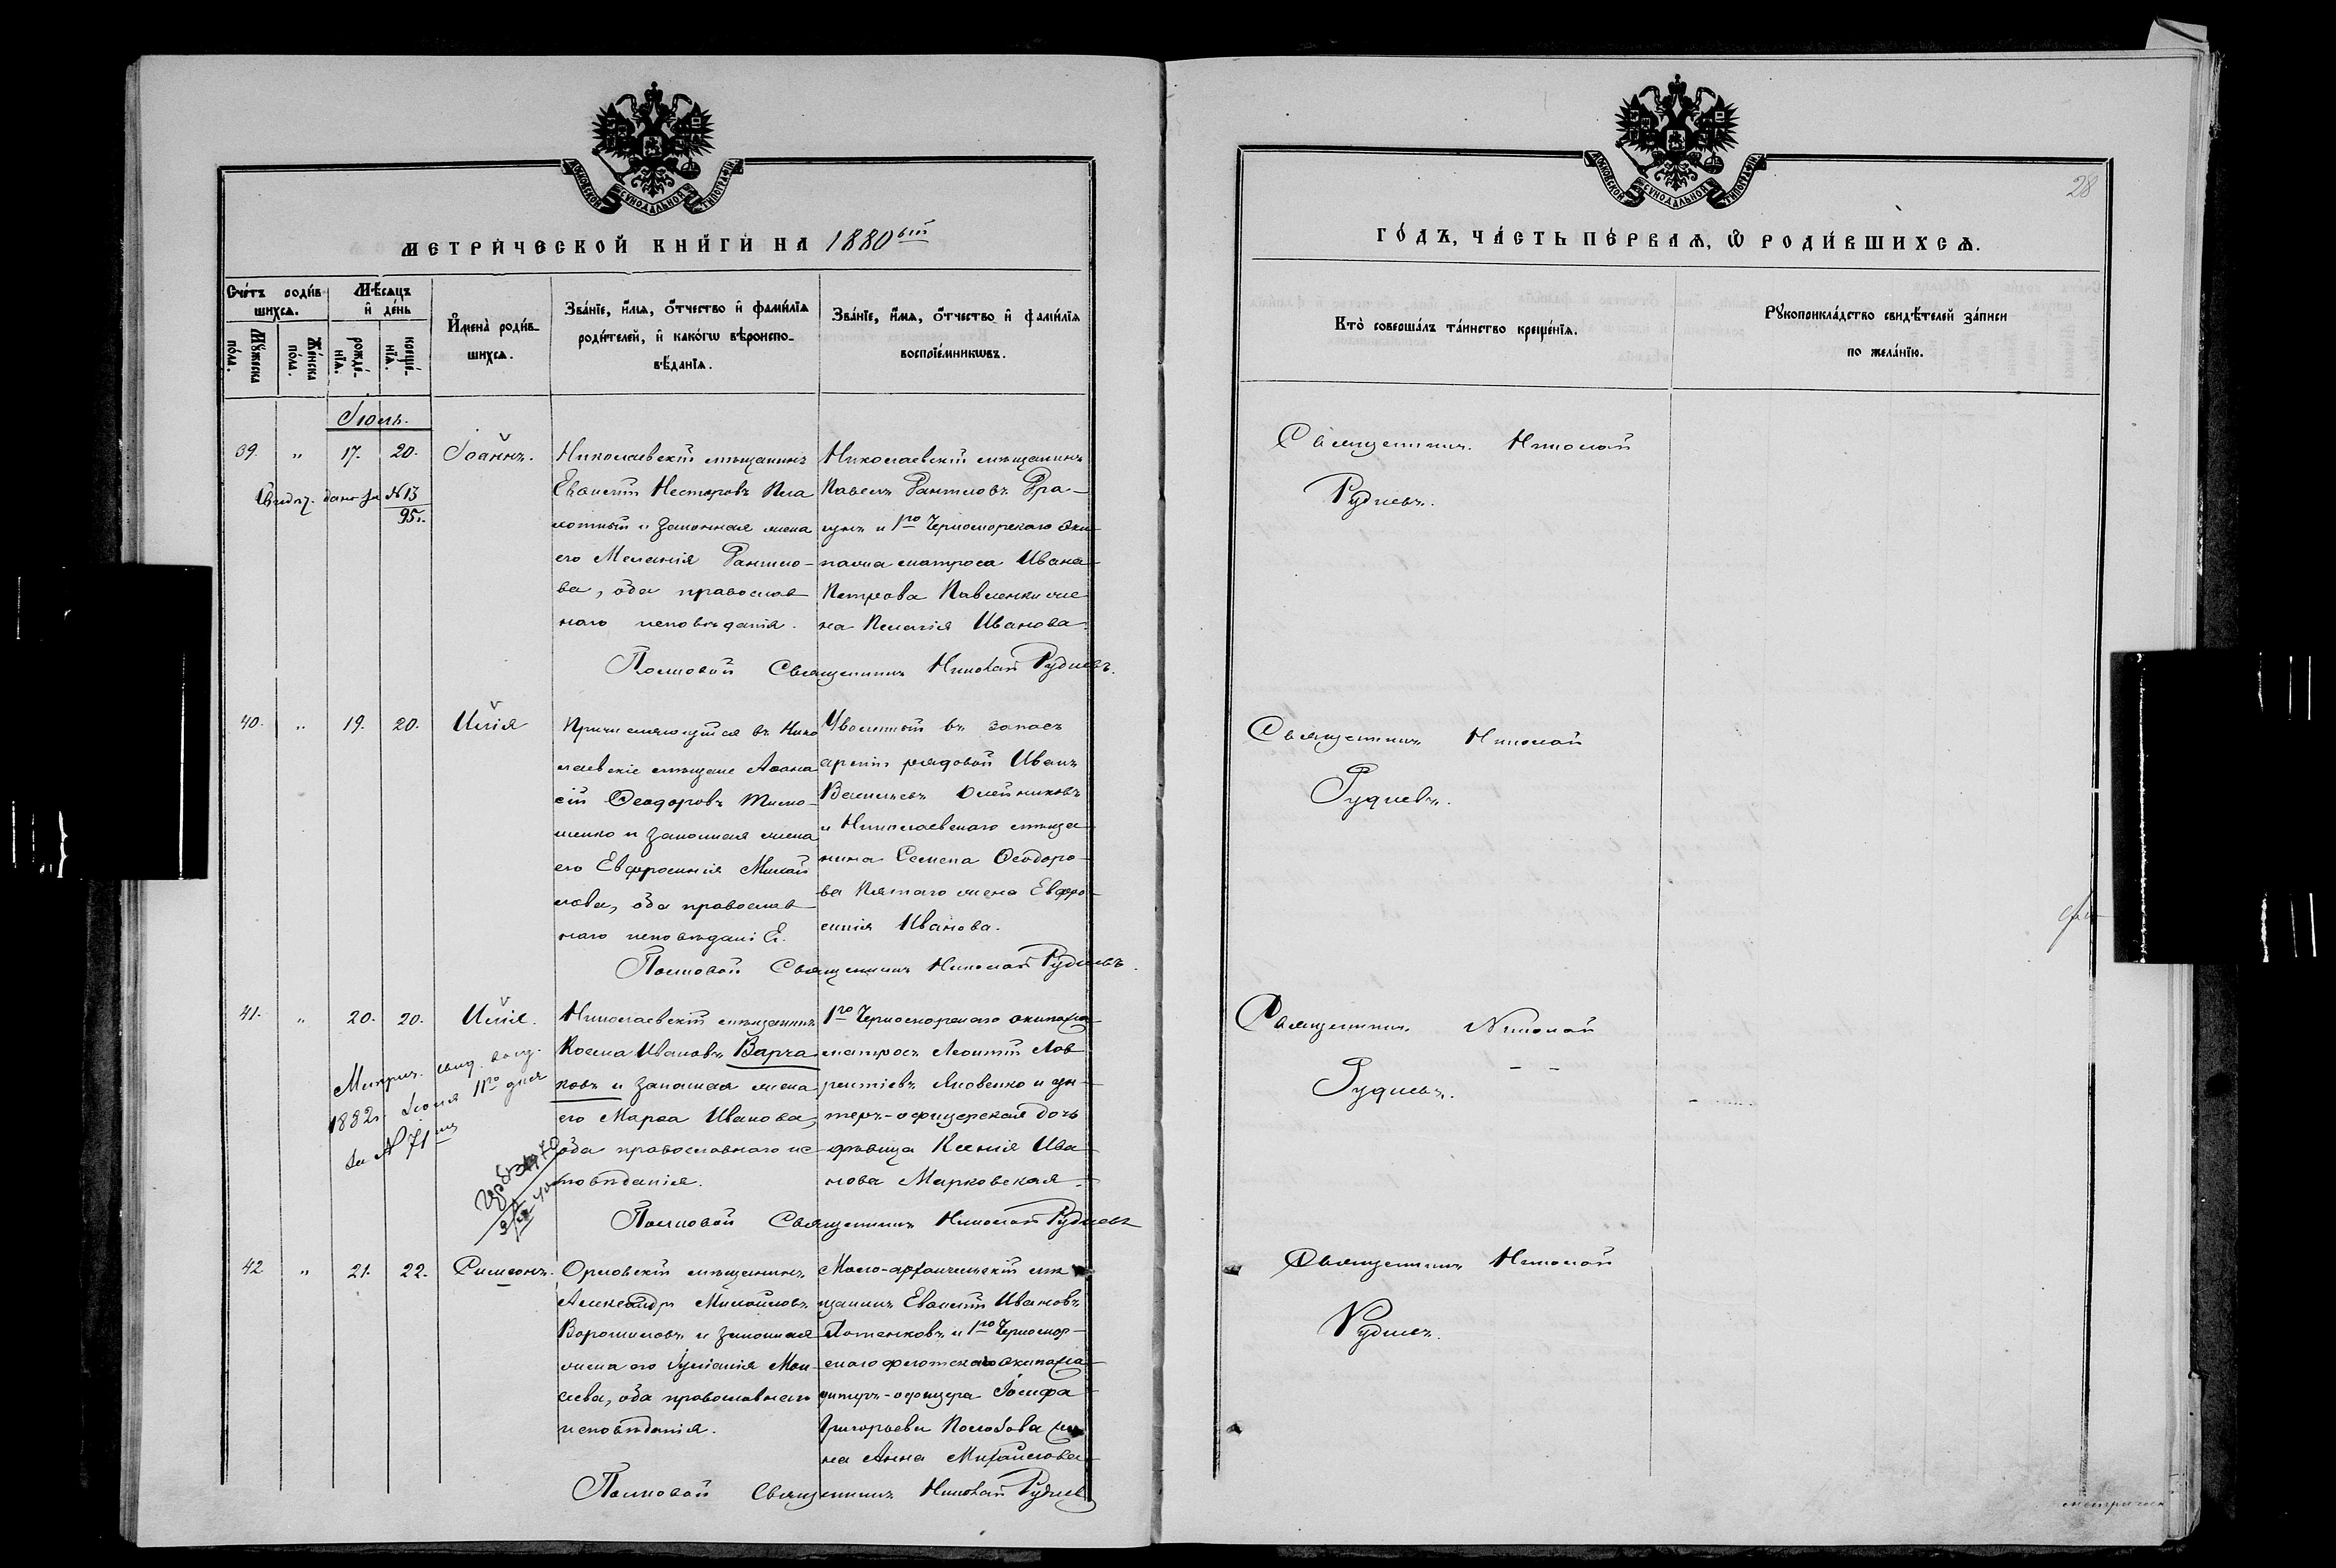 МОСКОВСКОЙ СѴНОДАЛЬНОЙ ТИПОГРАФІИ
МЕТРИ́ЧЕСКОЙ КНИ́ГИ НА 1880ый
Сче́тъ роди́в-
шихсѧ.
Мꙋ́жеска по́ла.
Же́нска по́ла.
Мѣ́сѧцъ
и҆ де́нь
рожде́-
нїѧ.
креще́-
нїѧ.
И҆мена̀ роди́в-
шихсѧ.
Зва́нїе, и҆́мѧ, ѻ҆́тчество и҆ фами́лїѧ
роди́телей, и҆ како́гѡ вѣроиспо-
вѣ́данїѧ.
Зва́нїе, и҆́мѧ, ѻ҆́тчество и҆ фами́лїѧ
воспрїе́мникѡвъ.
Іюль.
39. " 17. 20. Іоаннъ.
Свидѣт. дано за № 13
95 г.
Николаевскій мѣщанинъ
Евѳимій Несторовъ
и законная жена
его Меланія
ва, оба православ
наго исповѣданія.
Николаевскій мѣщанинъ
Павелъ
и 1го Черноморскаго Эки
пажа матроса Ивана
Петрова Павленки же
на Пелагія Иванова.
Полковой Священникъ Николай Рудневъ.
40. " 19. 20. Илія
Причисляющійся въ Нико
лаевскіе мѣщане Аѳана
сій Ѳеодоровъ Тимо-
шенко и законная жена
его Евфросинія Михай
лова, оба православ-
наго исповѣданія.
Уволенный въ запасъ
арміи рядовой Иванъ
Васильевъ Олейниковъ
и Николаевскаго мѣща
нина Семена Ѳеодоро-
ва Пятаго жена Евфро-
синія Иванова.
Полковой Священникъ Николай Рудневъ.
41. " 20. 20. Илія.
Метрич. свид. выд.
1882 г. Іюня 11го дня
за № 71мъ
Николаевскій мѣщанинъ
Косма Ивановъ Варча
ковъ и законная жена
его Марѳа Иванова,
оба православнаго ис
повѣданія.
1го Черноморскаго экипажа
матросъ Леонтій Лав
рентіевъ Яковенко и ун-
теръ-офицерская дочь
дѣвица Ксенія Ива
нова Марковская.
Полковой Священникъ Николай Рудневъ
42 " 21. 22. Симеонъ.
Орловскій мѣщанинъ
Александръ Михайловъ
Ворошиловъ и законная
жена его Іуліанія Мои-
сеева, оба православнаго
исповѣданія.
Мало-архангельскій мѣ
щанинъ Евѳимій Ивановъ
Потенковъ и 1го Черномор-
скаго флотскаго экипажа
унтеръ-офицера Іосифа
Григорьева Колобова же
на Анна Михайлова
Полковой Священникъ Николай Руднев
МОСКОВСКОЙ СѴНОДАЛЬНОЙ ТИПОГРАФІИ
28
ГО́ДЪ, ЧА́СТЬ ПЕ́РВАѦ, Ѡ҆ РОДИ́ВШИХСѦ.
Кто̀ соверша́лъ та́инство креще́нїѧ.
Рꙋкоприкла́дство свидѣ́телей за́писи
по жела́нїю.
Священникъ Николай
Рудневъ.
Священникъ Николай
Рудневъ.
Священникъ Николай
Рудневъ.
Священникъ Николай
Рудневъ.